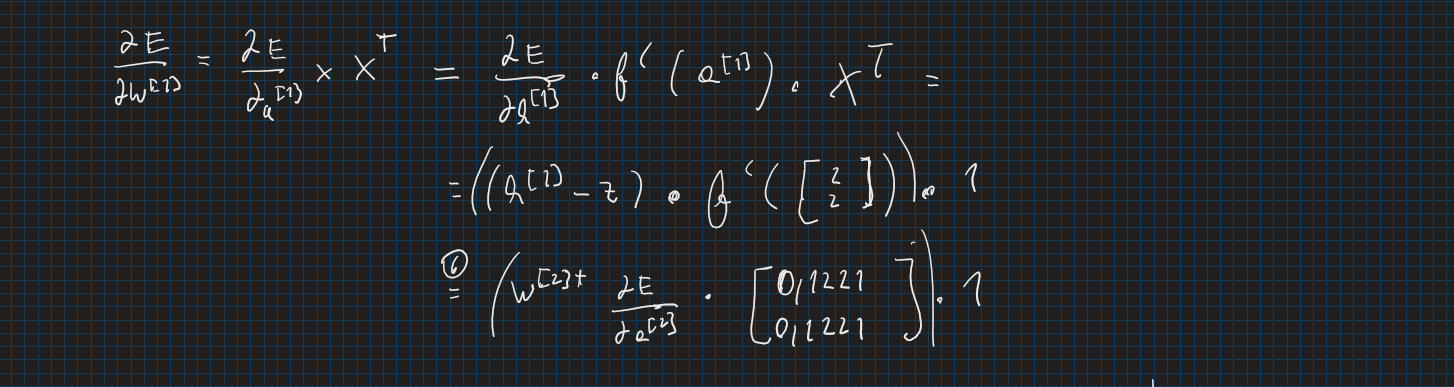 ∂E/∂W^[1] = ∂E/∂a^[1] × X^T = ∂E/∂h^[1] · f'(a^[1]) · X^T =
= ((h^[1] - z) · f'([2 2])) · 1
⑥ = (W^[2]T ∂E/∂a^[2] · [0,1221 0,1221]) · 1